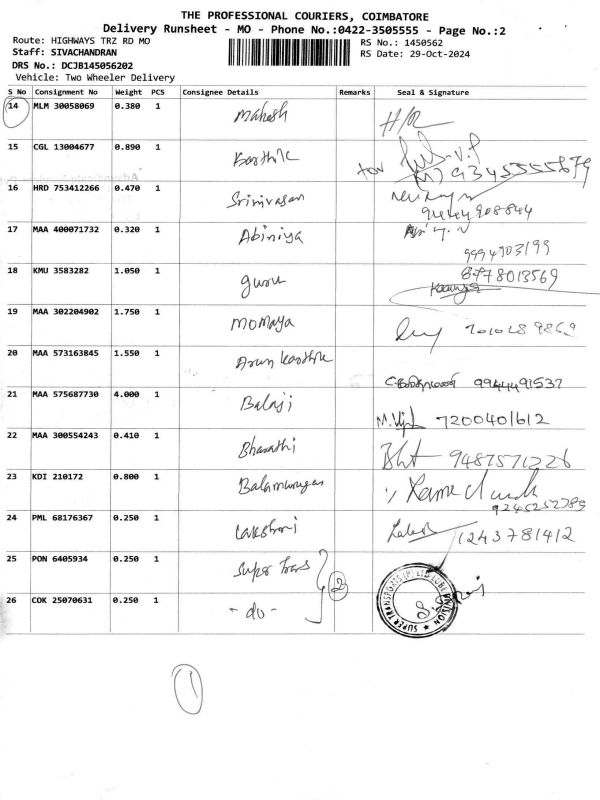 THE PROFESSIONAL COURIERS, COIMBATORE
Delivery Runsheet - MO - Phone No.:0422-3505555 - Page No.:2
Route: HIGHWAYS TRZ RD MO
RS No.: 1450562
Staff: SIVACHANDRAN
RS Date: 29-Oct-2024
DRS No.: DCJB145056202
Vehicle: Two Wheeler Delivery
S No Consignment No Weight PCS Consignee Details Remarks Seal & Signature
14 MLM 30058069 0.380 1 Mahesh
15 CGL 13004677 0.890 1 Karthik 9345355879
16 HRD 753412266 0.470 1 Srinivasan
17 MAA 400071732 0.320 1 Abiniya
9994903199
18 KMU 3583282 1.050 1 guru 8778013569
19 MAA 302204902 1.750 1 MOMAYA
20 MAA 573163845 1.550 1 Arun Karthik
9944491537
21 MAA 575687730 4.000 1 Balaji 7200401612
22 MAA 300554243 0.410 1 Bharathi 9487571226
23 KDI 210172 0.800 1 Balamurugan
9245252389
24 PML 68176367 0.250 1 Lakshmi 1243781412
25 PON 6405934 0.250 1 Super Trans
2
26 COK 25070631 0.250 1 - do -
1